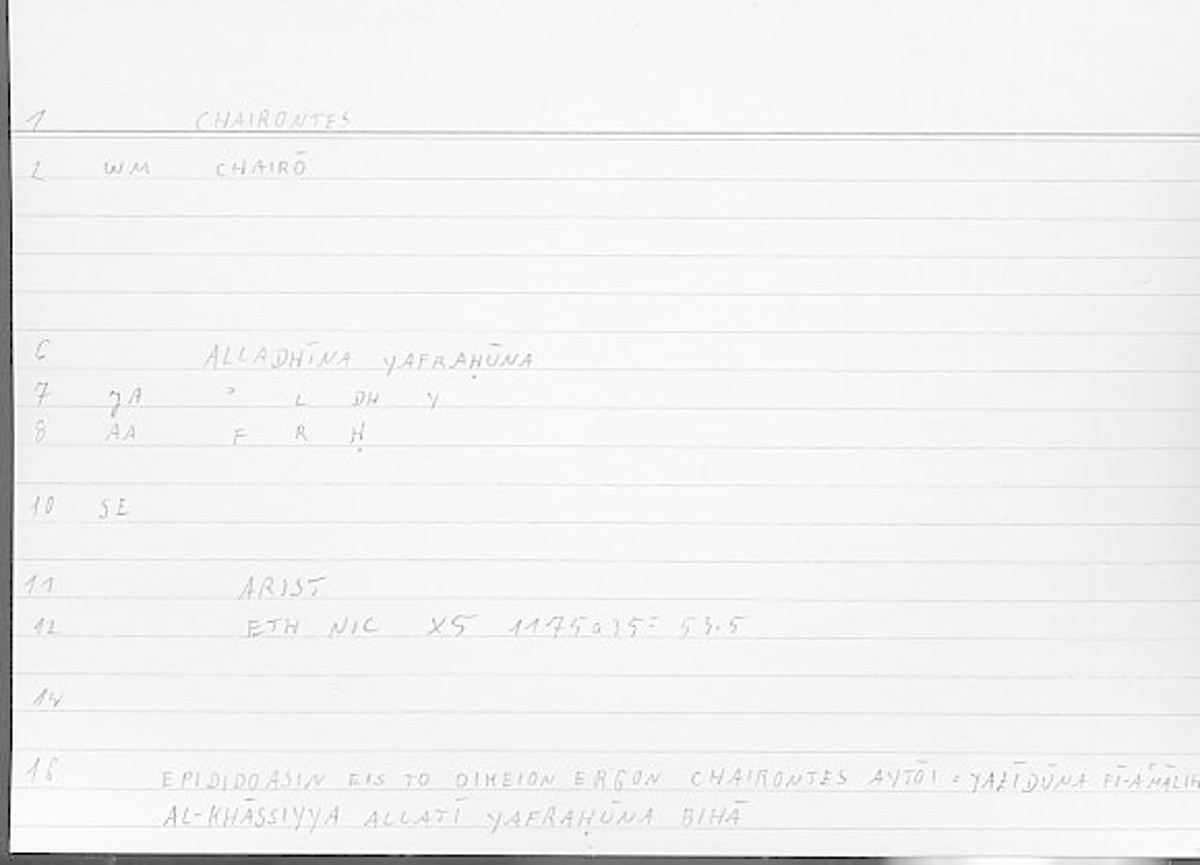 1 CHAIRONTES
2 WM CHAIRŌ
6 ALLADHĪNA YAFRAḤŪNA
7 JA ʾ L DH Y
8 AA F R Ḥ
10 SE
11 ARIST
12 ETH NIC X5 1175a35 = 53.5
14
16 EPIDIDOASIN EIS TO OIKEION ERGON CHAIRONTES AYTŌI = YAZĪDŪNA FĪ
AL-KHĀSSIYYA ALLATĪ YAFRAḤŪNA BIHĀ